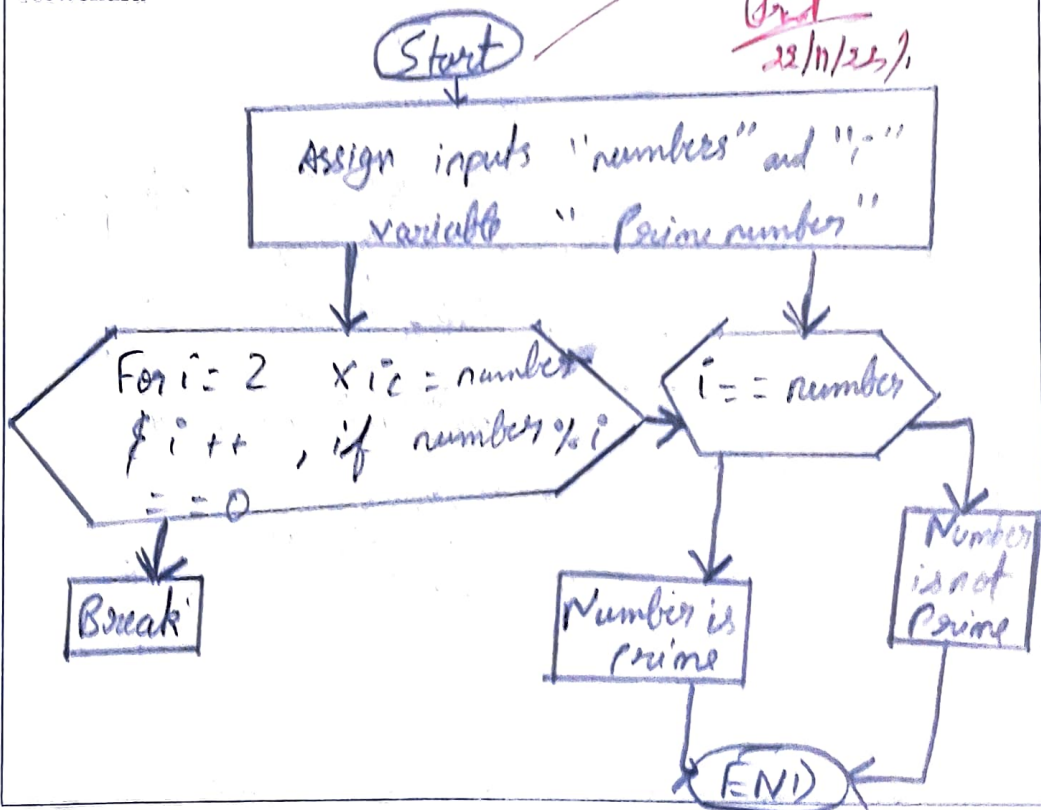 22/11/23
Start
Assign inputs "numbers" and "i"
variable "Prime number"
For i = 2 x i < = number
$ i ++ , if number % i
= = 0
i = = number
Break
Number is
prime
Number
is not
Prime
END